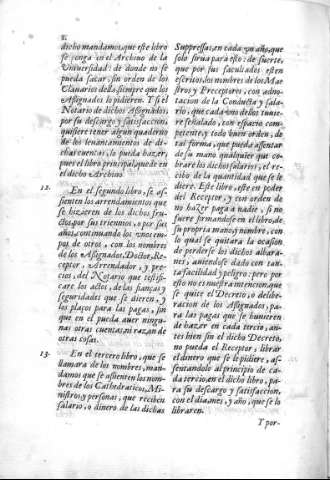 dicho mandamos, que este libro
se ponga en el Archiuo de la
Vniuersidad: de donde no se
pueda sacar, sin orden de los
Clauarios dello, siempre que los
Assignados lo pidieren. Y si el
Notario de dichos Assignados,
por su descargo y satisfaccion,
quisiere tener algun quaderno
de los leuantamientos de di-
chas cuentas, lo pueda hazer,
pues el libro principal quede en
el dicho Archiuo.
12. En el segundo libro, se as-
sienten los arrendamientos que
se hizieren de los dichos fru-
ctos, por sus trienios, o por sus
años, continuando los vnos tem-
pos de otros, con los nombres
de los Assignados, Doctor, Re-
ceptor, Arrendador, y pre-
cios, del Notario que testifi-
care los actos, de las fianças y
seguridades que se dieren, y
los plaços para las pagas, sin
que en el pueda auer ningu-
nas otras cuentas, ni razon de
otras cosas.
13. En el tercero libro, que se
llamara de los nombres, man-
damos que se assienten los nom-
bres de los Cathedraticos, Mi-
nistros, y personas, que reciben
salario, o dinero de las dichas
Suppressas, en cada vn año, que
solo sirua para esto: de suerte,
que por sus facultades esten
escritos, los nombres de los Mae-
stros y Preceptores, con adno-
tacion de la Conducta y sala-
rio, que cada vno dellos tuuie-
re señalado, con espacio com-
petente, y todo buen orden, de
tal forma, que pueda assentar
de su mano qualquier que co-
brare los dichos salarios, el re-
cibo de la quantidad que se le
diere. Este libro, este en poder
del Receptor, y con orden de
no hazer paga a nadie, si no
fuere firmandose en el libro, de
su propria mano, y nombre, con
lo qual se quitara la ocasion
de perderse los dichos albara-
nes, auiendose dado con tan-
ta facilidad y peligro: pero por
esto no es nuestra intencion, que
se quite el Decreto, o delibe-
racion de los Assignados, pa-
ra las pagas que se huuieren
de hazer en cada tercio, an-
tes bien sin el dicho Decreto,
no pueda el Receptor, librar
el dinero que se le pidiere, as-
sentandolo al principio de ca-
da tercio, en el dicho libro, pa-
ra su descargo y satisfaccion,
con el dia, mes, y año, que se lo
libraren.
Y por-